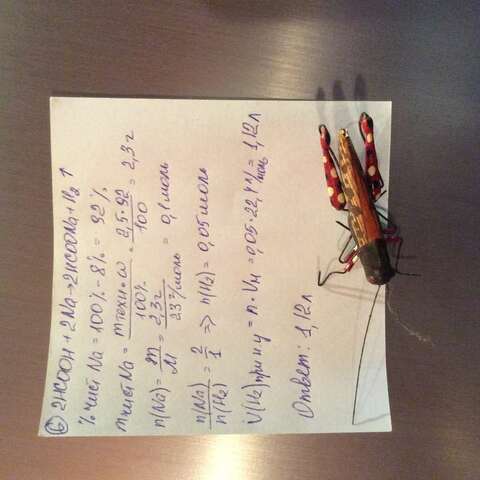 ⑥ 2HCOOH + 2Na → 2HCOONa + H₂ ↑
% чист Na = 100% - 8% = 92%
m чист Na = m техн • ω / 100% = 2,5 • 92 / 100 = 2,3 г
n(Na) = m / M = 2,3 г / 23 г/моль = 0,1 моль
n(Na) / n(H₂) = 2 / 1 => n(H₂) = 0,05 моль
V(H₂) при н у = n • Vм = 0,05 • 22,4 л/моль = 1,12 л
Ответ: 1,12 л